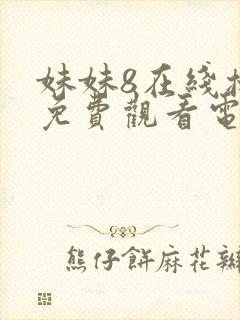 妹妹8在綫
免費觀看電
熊仔餅麻花辮